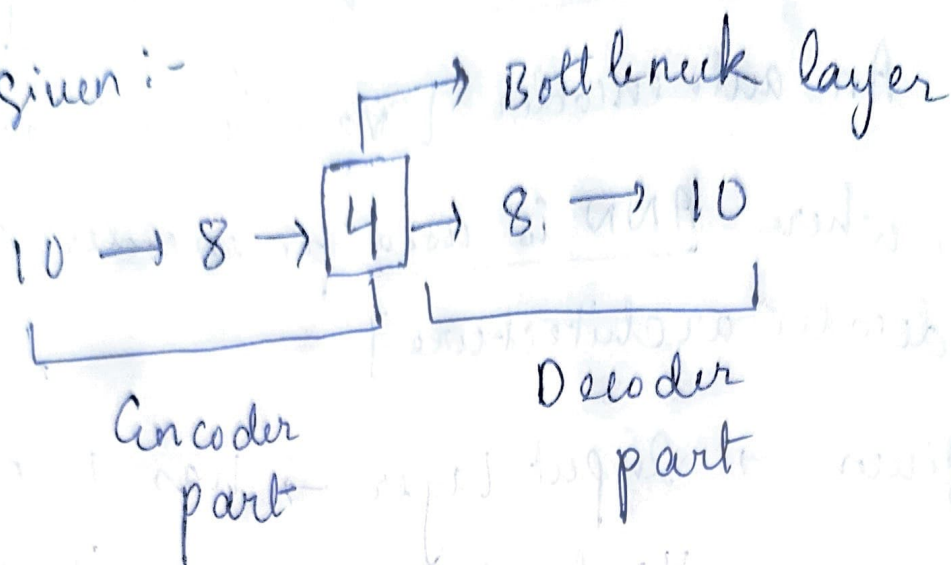 given :-
Bottleneck layer
10 → 8 → 4 → 8 → 10
Encoder
part
Decoder
part